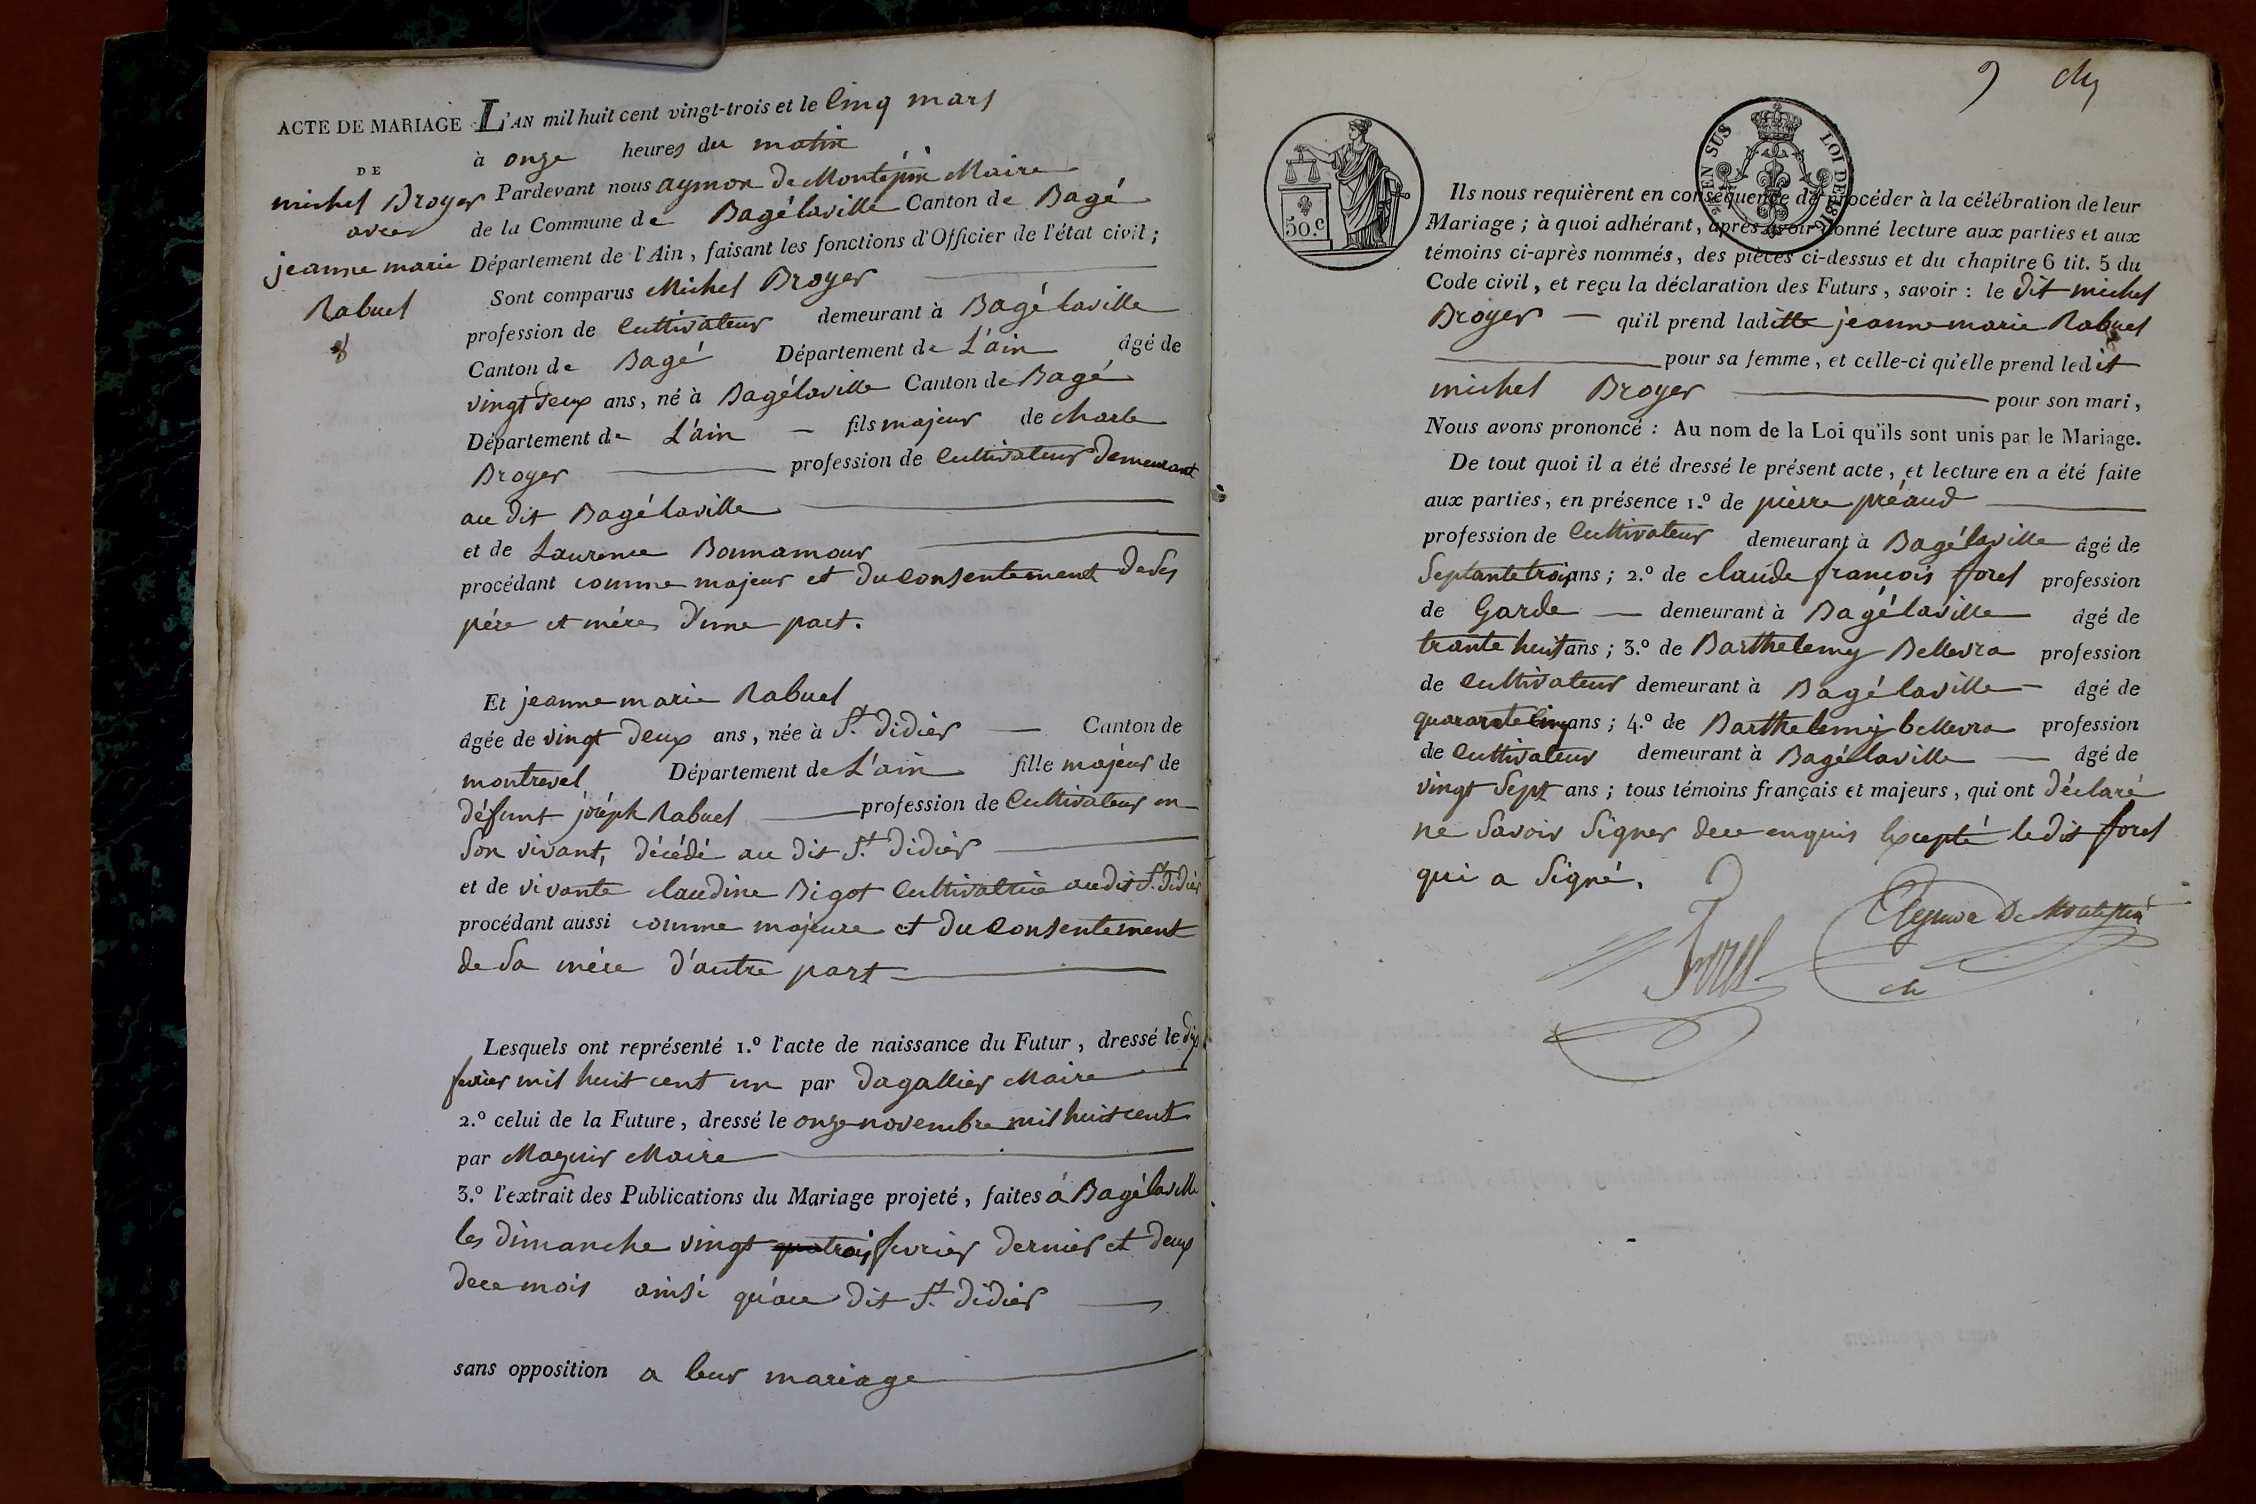 ACTE DE MARIAGE
DE
michel Broyer
avec
jeanne marie
Rabuel
L'AN mil huit cent vingt-trois et le Cinq mars
à onze heures du matin
Pardevant nous aymon de Montépin Maire
de la Commune de Bagélaville Canton de Bagé
Département de l'Ain, faisant les fonctions d'Officier de l'état civil;
Sont comparus Michel Broyer
profession de Cultivateur demeurant à Bagélaville
Canton de Bagé Département de L'ain âgé de
vingt deux ans, né à Bagélaville Canton de Bagé
Département de L'ain fils majeur de charle
Broyer profession de Cultivateur demeurant
au dit Bagélaville
et de Laurence Bonnamour
procédant comme majeur et du Consentement de ses
pére et mére d'une part.
Et jeanne marie Rabuel
âgée de vingt deux ans, née à St. didier Canton de
montrevel Département de L'ain fille majeur de
défunt joseph Rabuel profession de Cultivateur en
Son vivant, décédé au dit St. didier
et de vivante claudine Bigot Cultivatrice au dit St. didier
procédant aussi comme majeure et du Consentement
de Sa mére d'autre part
Lesquels ont représenté 1.º l'acte de naissance du Futur, dressé le dix
fevrier mil huit cent un par dagallier Maire
2.º celui de la Future, dressé le onze novembre mil huit cent
par Maguir Maire
3.º l'extrait des Publications du Mariage projeté, faites à Bagélaville
les dimanche vingt trois fevrier dernier et deux
de ce mois ainsi qu'au dit St. didier
sans opposition a leur mariage
9
50.C
EN SUS LOI DE 1816
Ils nous requièrent en conséquence de procéder à la célébration de leur
Mariage; à quoi adhérant, après avoir donné lecture aux parties et aux
témoins ci-après nommés, des pièces ci-dessus et du chapitre 6 tit. 5 du
Code civil, et reçu la déclaration des Futurs, savoir: le dit michel
Broyer qu'il prend laditte jeanne marie Rabuel
pour sa femme, et celle-ci qu'elle prend ledit
michel Broyer pour son mari,
Nous avons prononcé: Au nom de la Loi qu'ils sont unis par le Mariage.
De tout quoi il a été dressé le présent acte, et lecture en a été faite
aux parties, en présence 1.º de pierre préaud
profession de Cultivateur demeurant à Bagélaville âgé de
Septante trois ans; 2.º de claude francois forel profession
de Garde demeurant à Bagélaville âgé de
trante huit ans; 3.º de Barthelemy Bellevra profession
de Cultivateur demeurant à Bagélaville âgé de
quarante Cinq ans; 4.º de Barthelemy bellevra profession
de Cultivateur demeurant à Bagélaville âgé de
vingt Sept ans; tous témoins français et majeurs, qui ont déclaré
ne Savoir Signer de ce enquis Excepté le dit forel
qui a Signé.
Forel
De Montepin